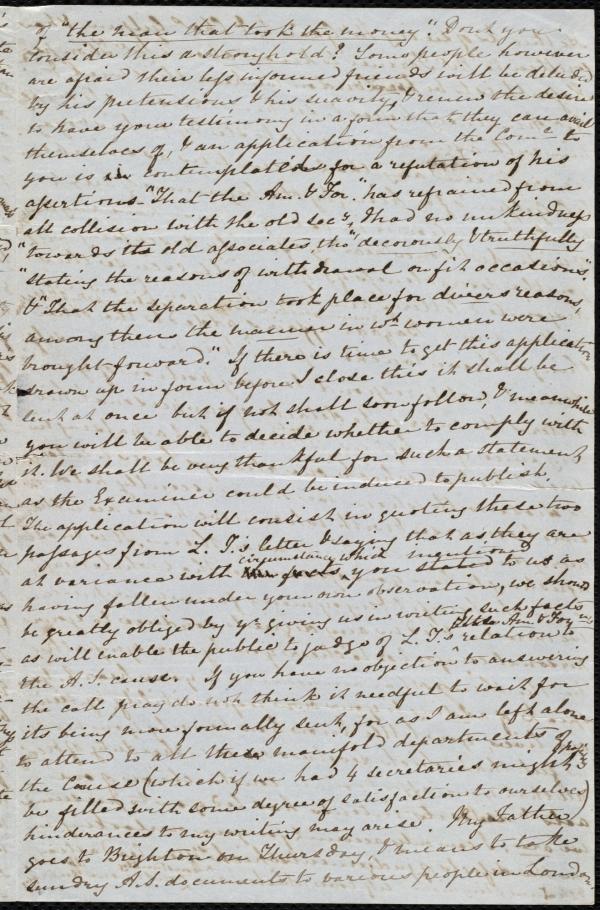 of "the man that took the money". Dont you
consider this a stronghold? Some people however
are afraid their less informed friends will be deluded
by his pretensions & his suavity, & renew the desire
to have your testimony in a form that they can avail
themselves of, & an application from the Comee. to
you is contemplated for a refutation of his
assertions "That the Am. & For." has refrained from
all collision with the old socy, & had no unkindness
"towards its old associates, tho' "decorously & truthfully
"stating the reasons of withdrawal on fit occasions".
& "That the separation took place for divers reasons,
among them the manner in wh women were
brought forward." If there is time to get this application
drawn up in form before I close this it shall be
sent at once but if not shall soon follow, & meanwhile
you will be able to decide whether to comply with
it. We shall be very thankful for such a statement
as the Examiner could be induced to publish.
The application will consist in quoting these two
passages from L. T.'s letter & saying that as they are
at variance with circumstances which you mentioned stated to us as
having fallen under your own observation, we should
be greatly obliged by yr giving us in writing such facts
as will enable the public to judge of L. T.'s relation to
the A.S. cause. If you have no objection to answering
the call pray do not think it needful to wait for
its being more formally sent, for as I am left alone
to attend to all these manifold departments of
the Cause (which if we had 4 secretaries might
be filled with some degree of satisfaction to ourselves)
hinderances to my writing may arise. My Father
goes to Brighton on Thursday, & means to take
sundry A.S. documents to various people in London,